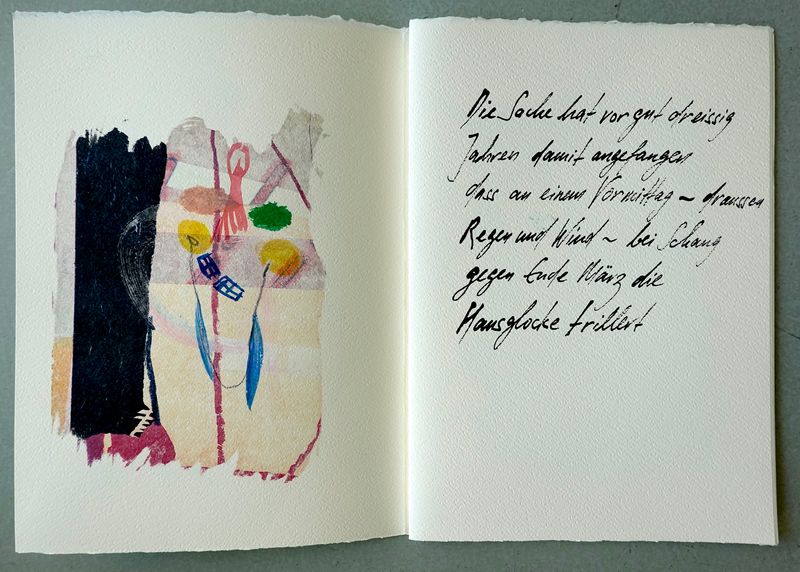 Die Sache hat vor gut dreissig
Jahren damit angefangen
dass an einem Vormittag ~ draussen
Regen und Wind ~ bei Schang
gegen Ende März die
Hausglocke trillert